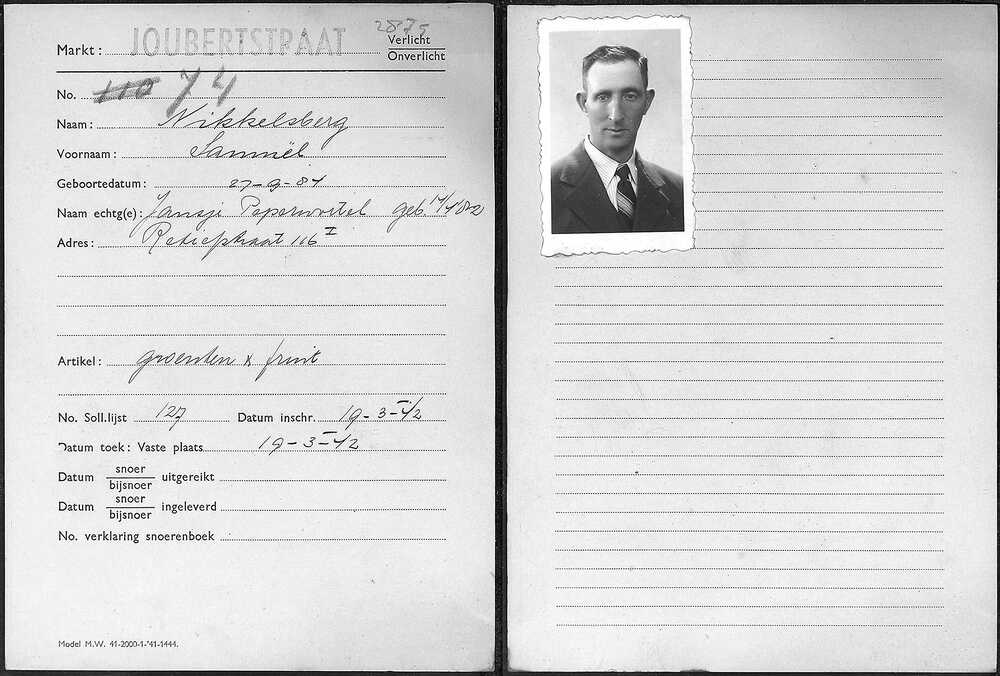 2875
Markt: JOUBERTSTRAAT Verlicht
Onverlicht
No. 110 74
Naam: Nikkelsberg
Voornaam: Samuël
Geboortedatum: 27-9-84
Naam echtg(e): Jansje Peperwortel geb. 14/4 82
Adres: Retiefstraat 116 I
Artikel: groenten & fruit
No. Soll.lijst 127 Datum inschr. 19-3-42
Datum toek: Vaste plaats 19-3-42
Datum snoer uitgereikt
bijsnoer
Datum snoer ingeleverd
bijsnoer
No. verklaring snoerenboek
Model M.W. 41-2000-1-'41-1444.